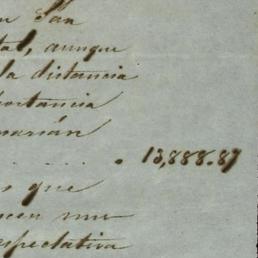 en San
tal, aunque
la distancia
portancia
marián
. . . . . . 13,888.87
s que
ecen mu-
espectativa